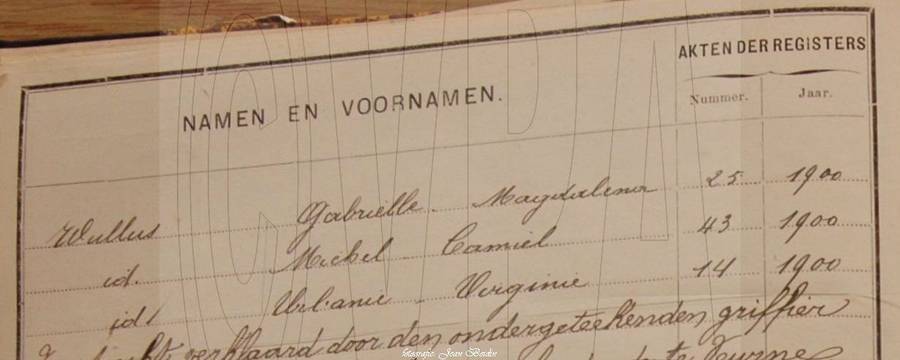 NAMEN EN VOORNAMEN. AKTEN DER REGISTERS
Nummer. Jaar.
Wullus Gabrielle - Magdalena 25 1900
id. Michel - Camiel 43 1900
id. Urbanie - Virginie 14 1900
verklaard door den ondergeteekenden griffier
Veurne
fotografie Joan Bordon